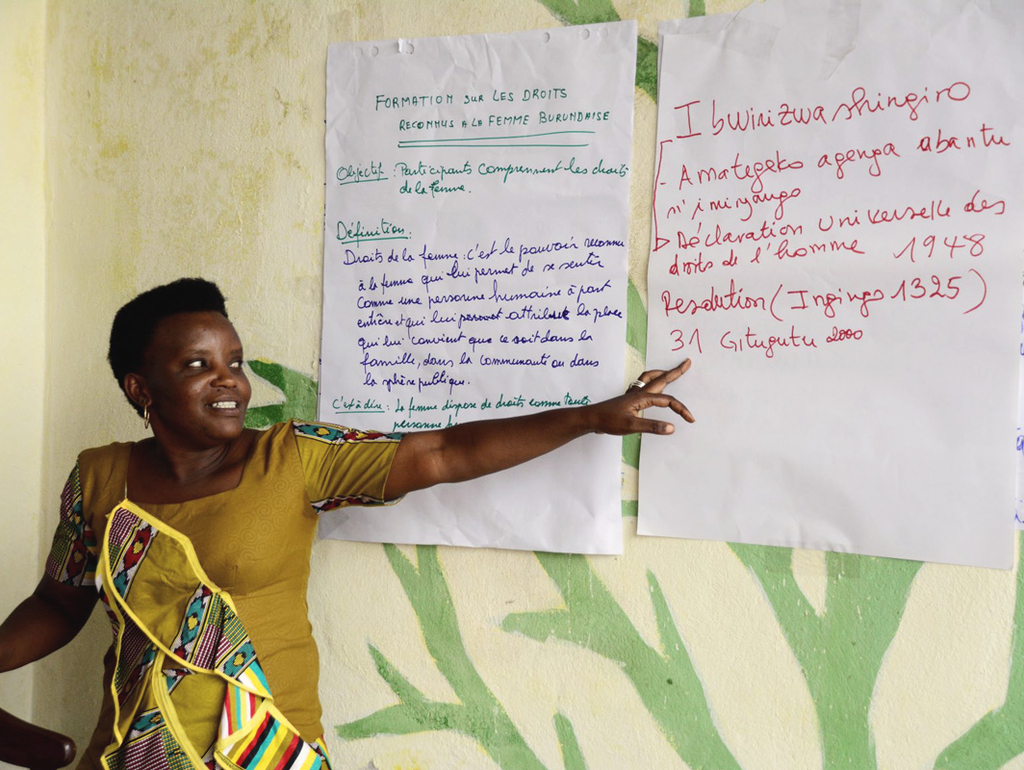 FORMATION SUR LES DROITS
RECONNUS A LA FEMME BURUNDAISE
Objectif : Participants comprennent les droits
de la femme.
Définition :
Droits de la femme : c'est le pouvoir reconnu
à la femme qui lui permet de se sentir
comme une personne humaine à part
entière et qui lui permet attribue la place
qui lui convient que ce soit dans la
famille, dans la communauté ou dans
la sphère publique.
C'est à dire : La femme dispose de droits comme toute
personne
Ibwirizwa shingiro
- Amategeko agenga abantu
n'imiryango
Déclaration Universelle des
droits de l'homme 1948
Resolution (Ingingo 1325)
31 Gitugutu 2000